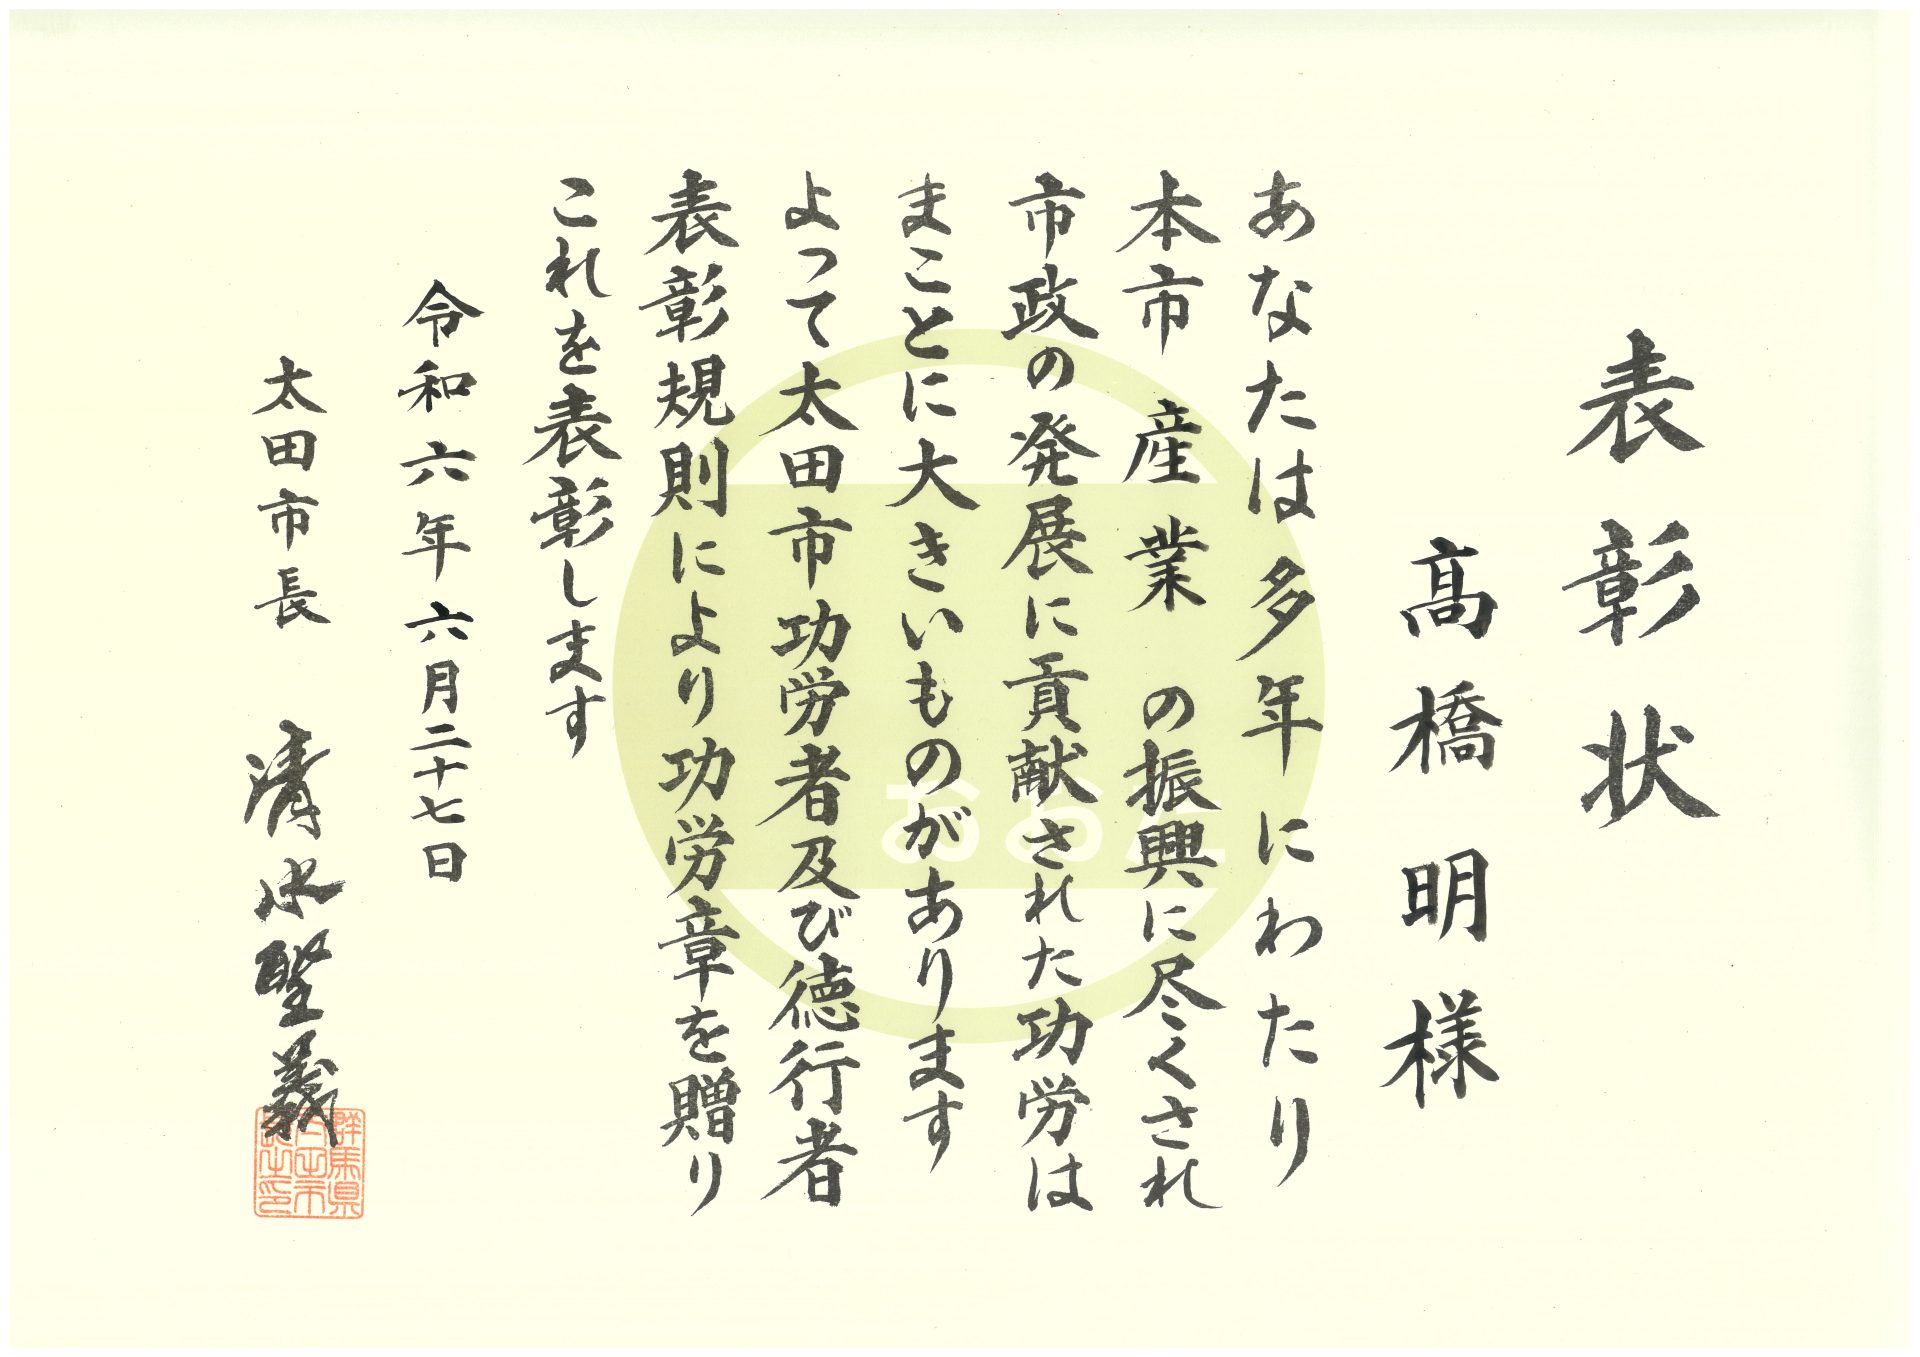 表彰状
髙橋明様
あなたは多年にわたり
本市産業の振興に尽くされ
市政の発展に貢献された功労は
まことに大きいものがあります
よって太田市功労者及び徳行者
表彰規則により功労章を贈り
これを表彰します
令和六年六月二十七日
太田市長 清水聖義
おおた